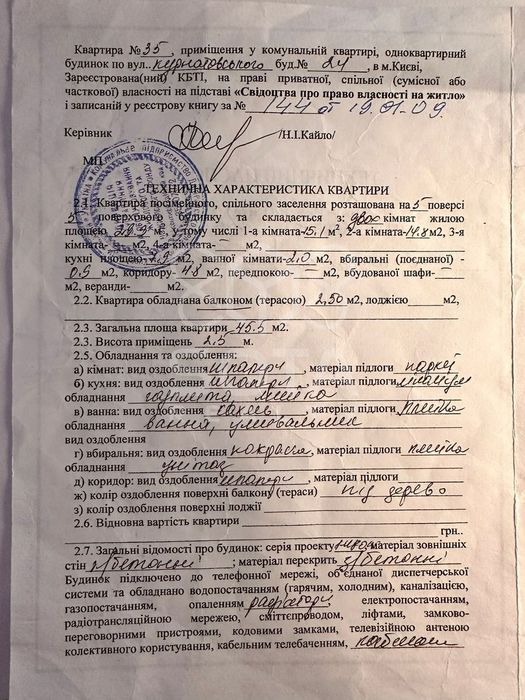 Квартира № 35, приміщення у комунальній квартирі, одноквартирний
будинок по вул.. Курнатовського буд.№ 24, в м.Києві,
Зареєстрована(ний) КБТІ, на праві приватної, спільної (сумісної або
часткової) власності на підставі «Свідоцтва про право власності на житло»
і записаній у реєстрову книгу за № 144 от 19.01.09.
Керівник /Н.І.Кайло/
МП
ТЕХНІЧНА ХАРАКТЕРИСТИКА КВАРТИРИ
2.1. Квартира посімейного, спільного заселення розташована на 5 поверсі
5 поверхового будинку та складається з: двох кімнат жилою
площею 29.9 м2, у тому числі 1-а кімната-15.1 м2, 2-а кімната-14.8 м2, 3-я
кімната- м2, 4-а кімната- м2,
кухні площею м2, ванної кімнати-2.0 м2, вбиральні (поєднаної) -
0.9 м2, коридору- 4.8 м2, передпокою- м2, вбудованої шафи-
м2, веранди- м2.
2.2. Квартира обладнана балконом (терасою) 2,50 м2, лоджією м2,
2.3. Загальна площа квартири 45.5 м2.
2.3. Висота приміщень 2,5 м.
2.5. Обладнання та оздоблення:
а) кімнат: вид оздоблення шпалери, матеріал підлоги паркет
б) кухня: вид оздоблення шпалери, матеріал підлоги лінолеум
обладнання газплита, мийка
в) ванна: вид оздоблення кахель, матеріал підлоги плитка
обладнання ванна, умивальник
вид оздоблення
г) вбиральня: вид оздоблення покраска, матеріал підлоги плитка
обладнання унітаз
д) коридор: вид оздоблення шпалери, матеріал підлоги
ж) колір оздоблення поверхні балкону (тераси) під дерево
з) колір оздоблення поверхні лоджії
2.6. Відновна вартість квартири
грн..
2.7. Загальні відомості про будинок: серія проекту матеріал зовнішніх
стін з/бетонні; матеріал перекрить з/бетонні
Будинок підключено до телефонної мережі, об'єднаної диспетчерської
системи та обладнано водопостачанням (гарячим, холодним), каналізацією,
газопостачанням, опаленням радіатори, електропостачанням,
радіотрансляційною мережею, сміттєпроводом, ліфтами, замково-
переговорними пристроями, кодовими замками, телевізійною антеною
колективного користування, кабельним телебаченням,